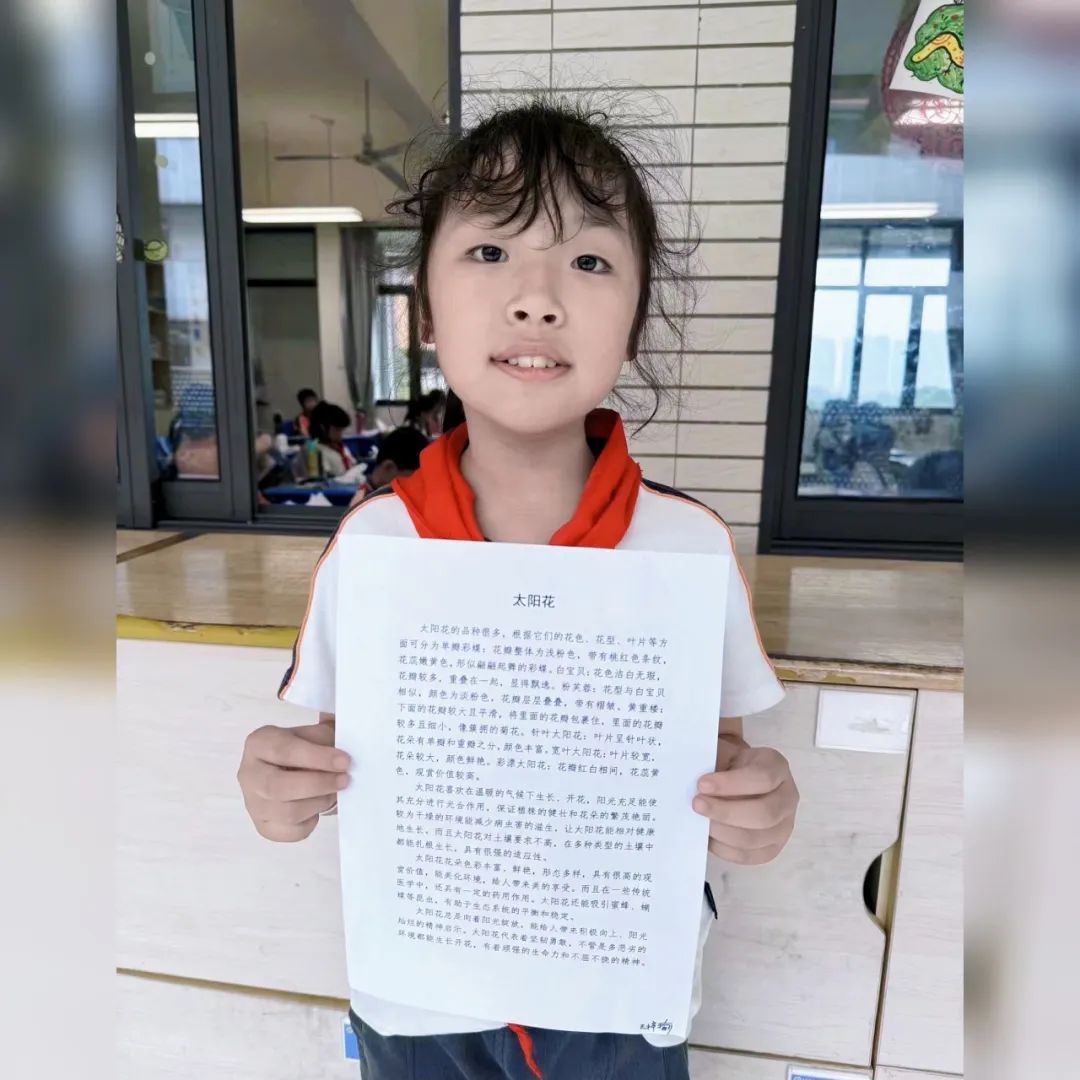 太阳花
太阳花的品种很多，根据它们的花色、花型、叶片等方
面可分为单瓣彩蝶：花瓣整体为浅粉色，带有桃红色条纹，
花蕊嫩黄色，形似翩翩起舞的彩蝶。白宝贝：花色洁白无瑕，
花瓣较多，重叠在一起，显得飘逸。粉芙蓉：花型与白宝贝
相似，颜色为淡粉色，花瓣层层叠叠，带有褶皱。黄重楼：
下面的花瓣较大且平滑，将里面的花瓣包裹住，里面的花瓣
较多且细小，像簇拥的菊花。针叶太阳花：叶片呈针叶状，
花朵有单瓣和重瓣之分，颜色丰富。宽叶太阳花：叶片较宽，
花朵较大，颜色鲜艳。彩漆太阳花：花瓣红白相间，花蕊黄
色，观赏价值较高。
太阳花喜欢在温暖的气候下生长、开花，阳光充足能使
其充分进行光合作用，保证植株的健壮和花朵的繁茂艳丽。
较为干燥的环境能减少病虫害的滋生，让太阳花能相对健康
地生长，而且太阳花对土壤要求不高，在多种类型的土壤中
都能扎根生长，具有很强的适应性。
太阳花花朵色彩丰富、鲜艳，形态多样，具有很高的观
赏价值，能美化环境，给人带来美的享受。而且在一些传统
医学中，还具有一定的药用作用。太阳花还能吸引蜜蜂、蝴
蝶等昆虫，有助于生态系统的平衡和稳定。
太阳花总是向着阳光绽放，能给人带来积极向上、阳光
灿烂的精神启示。太阳花代表着坚韧勇敢，不管是多恶劣的
环境都能生长开花，有着顽强的生命力和不屈不挠的精神。